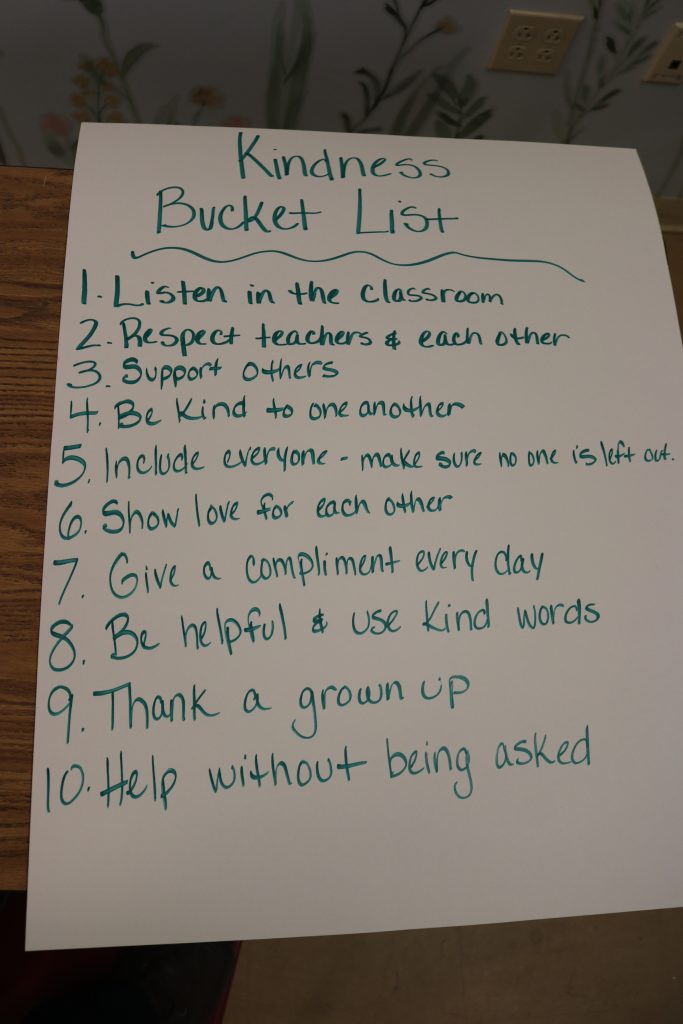 Kindness
Bucket List
1. Listen in the classroom
2. Respect teachers & each other
3. Support others
4. Be Kind to one another
5. Include everyone - make sure no one is left out.
6. Show love for each other
7. Give a compliment every day
8. Be helpful & use Kind words
9. Thank a grown up
10. Help without being asked